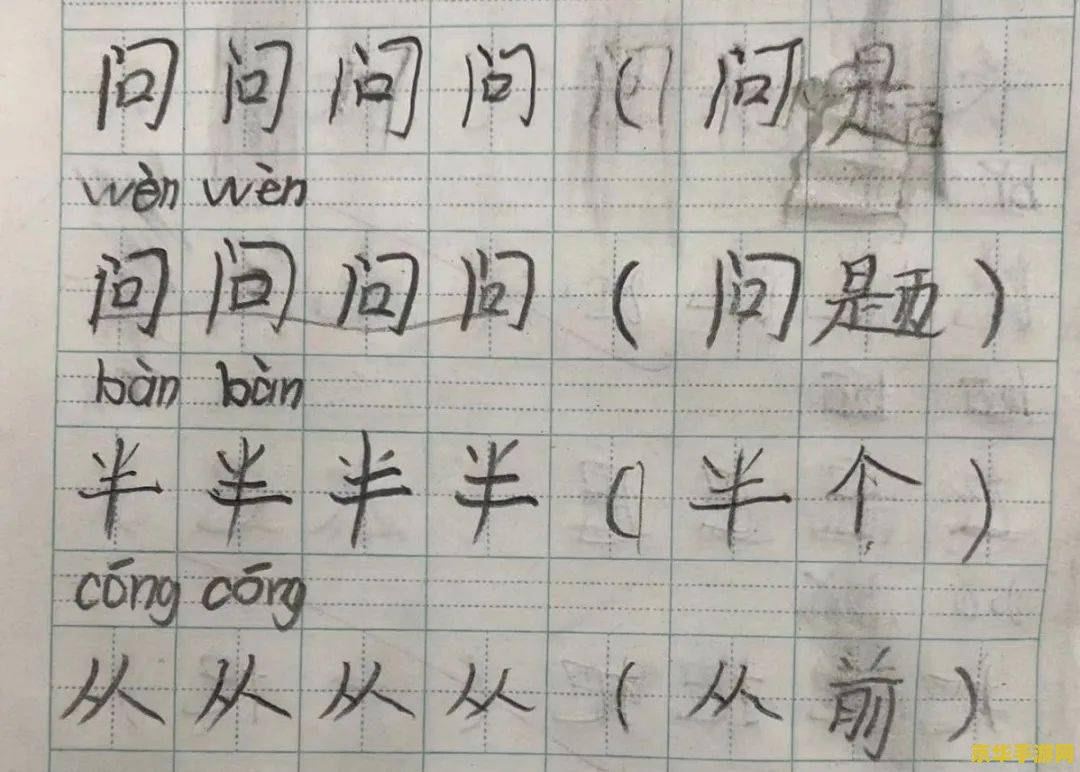 问 问 问 问 ( 问
wèn wèn
问 问 问 问 ( 问 题 )
bàn bàn
半 半 半 半 ( 半 个 )
cōng cōng
从 从 从 从 ( 从 前 )
京华手游网